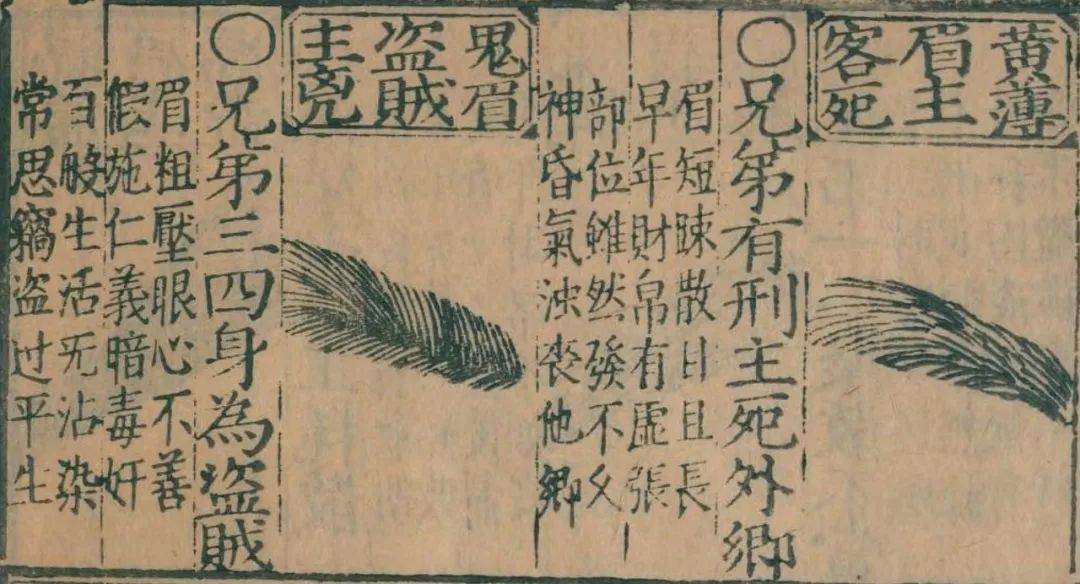 黄薄
眉主
客死
○兄弟有刑主死外鄉
眉短踈散目且長
早年財帛有虛張
部位雖然發不久
神昏氣濁丧他鄉
鬼眉
盗賊
主兇
○兄弟三四身為盗賊
眉粗壓眼心不善
假施仁義暗毒奸
百般生活无沾染
常思竊盗过平生